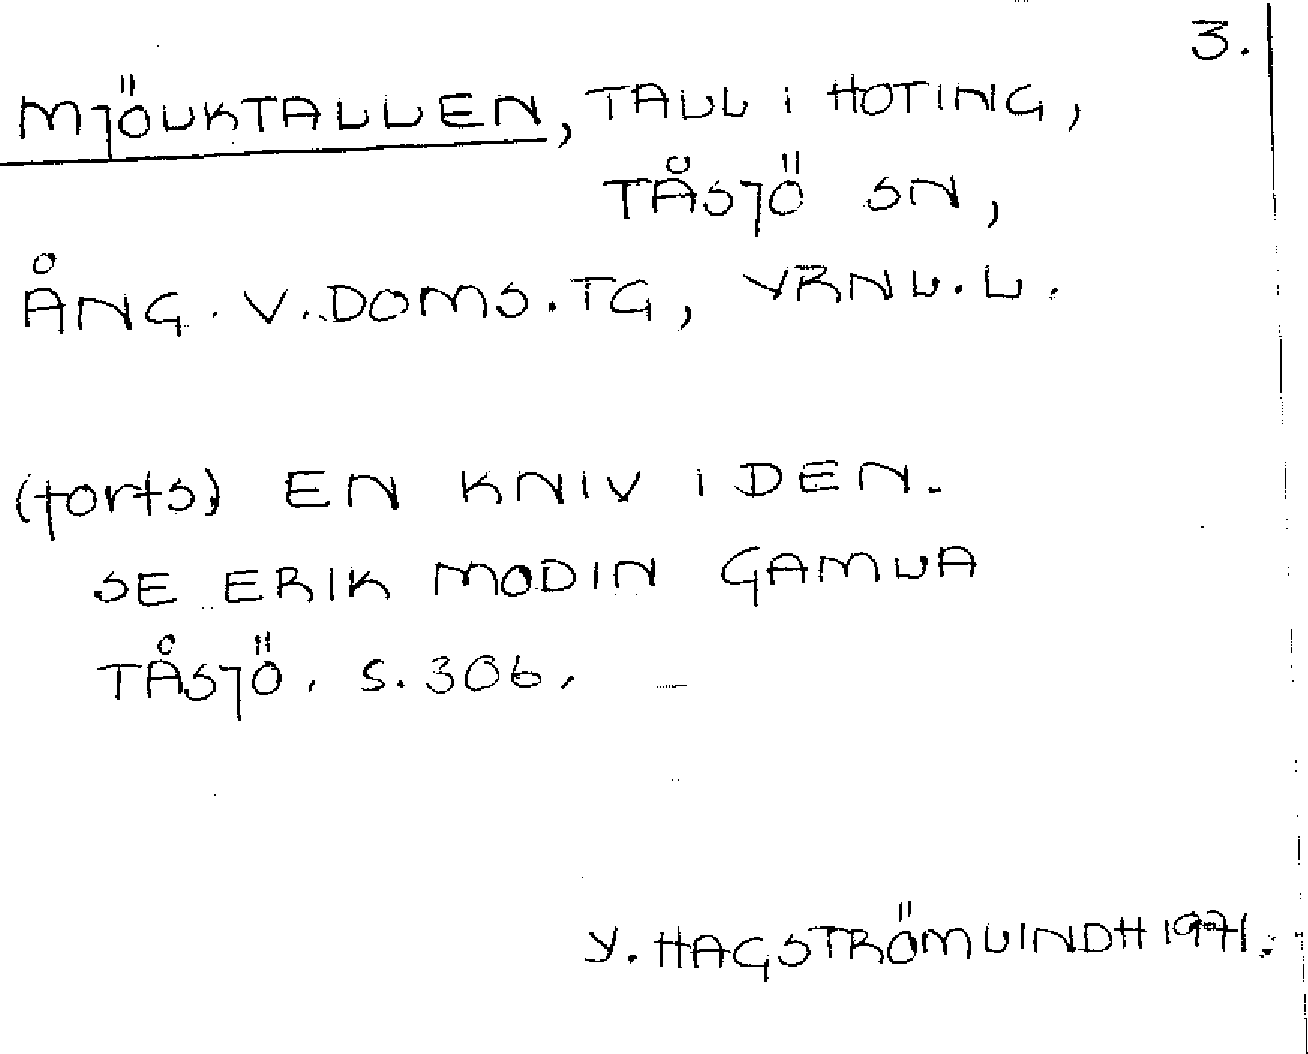 3.
MJÖLKTALLEN, TALL i HOTING,
TÅSJÖ SN,
ÅNG. V. DOMS. TG, VRNL. L.
(forts) EN KNIV i DEN.
SE ERIK MODIN GAMLA
TÅSJÖ. S. 306.
Y. HAGSTRÖM LINDH 1971.